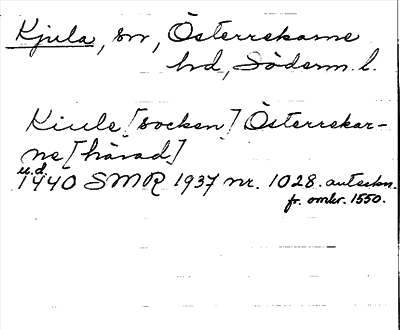 Kjula, sn, Österrekarne
hd, Söderm. l.
Kiule [socken] Österrekar-
ne [härad]
u.d.
1440 SMR 1937 nr. 1028. anteckn.
fr. omkr. 1550.